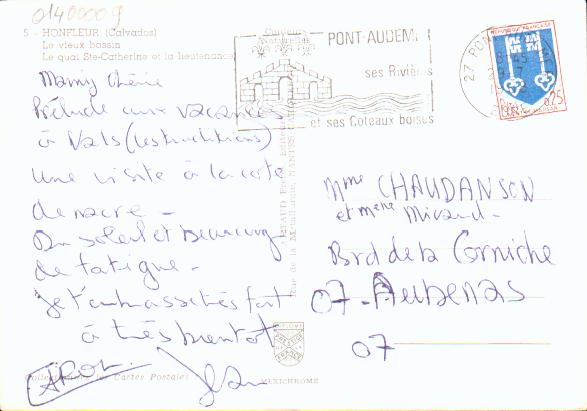 0140009
5 - HONFLEUR (Calvados)
Le vieux bassin
Le quai Ste-Catherine et la lieutenance
Mamy Chérie
Prélude aux vacances
à Vals (les traditions)
Une visite à la côte
de nacre -
Du soleil et beaucoup
de fatigue -
Je t'embrasse très fort
à très bientôt
PONT-AUDEMER
ses Rivières
et ses Coteaux boisés
27 PON
REPUBLIQUE FRANCAISE
0,25
Mme CHAUDANSON
et melle
Brd de la Corniche
07 - Aubenas
07
Collection des Cartes Postales
MEXICHROME